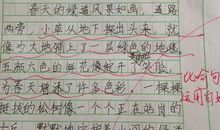 春天的绿道风景如画，道路
两旁，小草从地下探出头来，就
像为大地铺上了一层绿色的地毯
五颜六色的鲜花像绽开了笑脸，
为春天增添了许多色彩，一棵棵
挺拔的松树像一个个正在站岗的
比喻句
运用